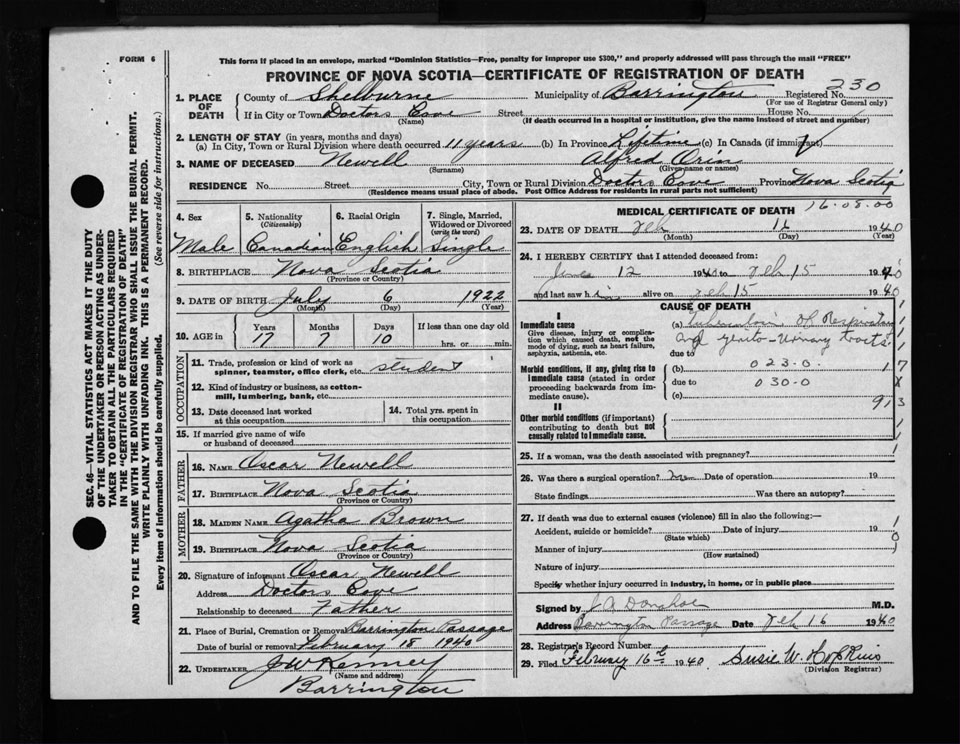 FORM 6
This form if placed in an envelope, marked "Dominion Statistics—Free, penalty for improper use $300," and properly addressed will pass through the mail "FREE"
PROVINCE OF NOVA SCOTIA—CERTIFICATE OF REGISTRATION OF DEATH
SEC. 46—VITAL STATISTICS ACT MAKES IT THE DUTY
OF THE UNDERTAKER OR PERSON ACTING AS UNDER-
TAKER TO OBTAIN ALL THE PARTICULARS REQUIRED
IN THE "CERTIFICATE OF REGISTRATION OF DEATH"
AND TO FILE THE SAME WITH THE DIVISION REGISTRAR WHO SHALL ISSUE THE BURIAL PERMIT.
WRITE PLAINLY WITH UNFADING INK. THIS IS A PERMANENT RECORD.
Every item of information should be carefully supplied. (See reverse side for instructions.)
1. PLACE OF DEATH County of Shelburne Municipality of Barrington Registered No. 230
(For use of Registrar General only)
If in City or Town Doctors Cove Street House No.
(Name) (If death occurred in a hospital or institution, give the name instead of street and number)
2. LENGTH OF STAY (in years, months and days)
(a) In City, Town or Rural Division where death occurred 11 years (b) In Province Lifetime (c) In Canada (if immigrant)
3. NAME OF DECEASED Newell Alfred Orin
(Surname) (Given name or names)
RESIDENCE No. Street City, Town or Rural Division Doctors Cove Province Nova Scotia
(Residence means usual place of abode. Post Office Address for residents in rural parts not sufficient)
4. Sex
Male
5. Nationality
(Citizenship)
Canadian
6. Racial Origin
English
7. Single, Married,
Widowed or Divorced
(write the word)
Single
8. BIRTHPLACE Nova Scotia
(Province or Country)
9. DATE OF BIRTH July 6 1922
(Month) (Day) (Year)
10. AGE in Years Months Days If less than one day old
17 7 10 hrs. or min.
OCCUPATION
11. Trade, profession or kind of work as
spinner, teamster, office clerk, etc. student
12. Kind of industry or business, as cotton-
mill, lumbering, bank, etc.
13. Date deceased last worked
at this occupation
14. Total yrs. spent in
this occupation
15. If married give name of wife
or husband of deceased
FATHER
16. NAME Oscar Newell
17. BIRTHPLACE Nova Scotia
(Province or Country)
MOTHER
18. MAIDEN NAME Agatha Brown
19. BIRTHPLACE Nova Scotia
(Province or Country)
20. Signature of informant Oscar Newell
Address Doctors Cove
Relationship to deceased Father
21. Place of Burial, Cremation or Removal Barrington Passage
Date of burial or removal February 18 1940
22. UNDERTAKER J W Kenney
(Name and address)
Barrington
MEDICAL CERTIFICATE OF DEATH 16.08.00
23. DATE OF DEATH Feb 16 1940
(Month) (Day) (Year)
24. I HEREBY CERTIFY that I attended deceased from:
12 1940 to Feb 15 1940
and last saw him alive on Feb 15 1940
CAUSE OF DEATH
I
Immediate cause
Give disease, injury or complica-
tion which caused death, not the
mode of dying, such as heart failure,
asphyxia, asthenia, etc.
(a) Tuberculosis of Respiratory
and genito-urinary tracts
due to
Morbid conditions, if any, giving rise to
immediate cause (stated in order
proceeding backwards from im-
mediate cause).
(b) 023.0
due to 030.0
(c)
17
913
II
Other morbid conditions (if important)
contributing to death but not
causally related to immediate cause.
25. If a woman, was the death associated with pregnancy?
26. Was there a surgical operation? Date of operation 19
State findings Was there an autopsy?
27. If death was due to external causes (violence) fill in also the following:—
Accident, suicide or homicide? Date of injury 19
(State which)
Manner of injury
(How sustained)
Nature of injury
Specify whether injury occurred in industry, in home, or in public place
Signed by J A Donahoe M.D.
Address Barrington Passage Date Feb 16 1940
28. Registrar's Record Number
29. Filed February 16th 1940 Susie W. Hopkins
(Division Registrar)